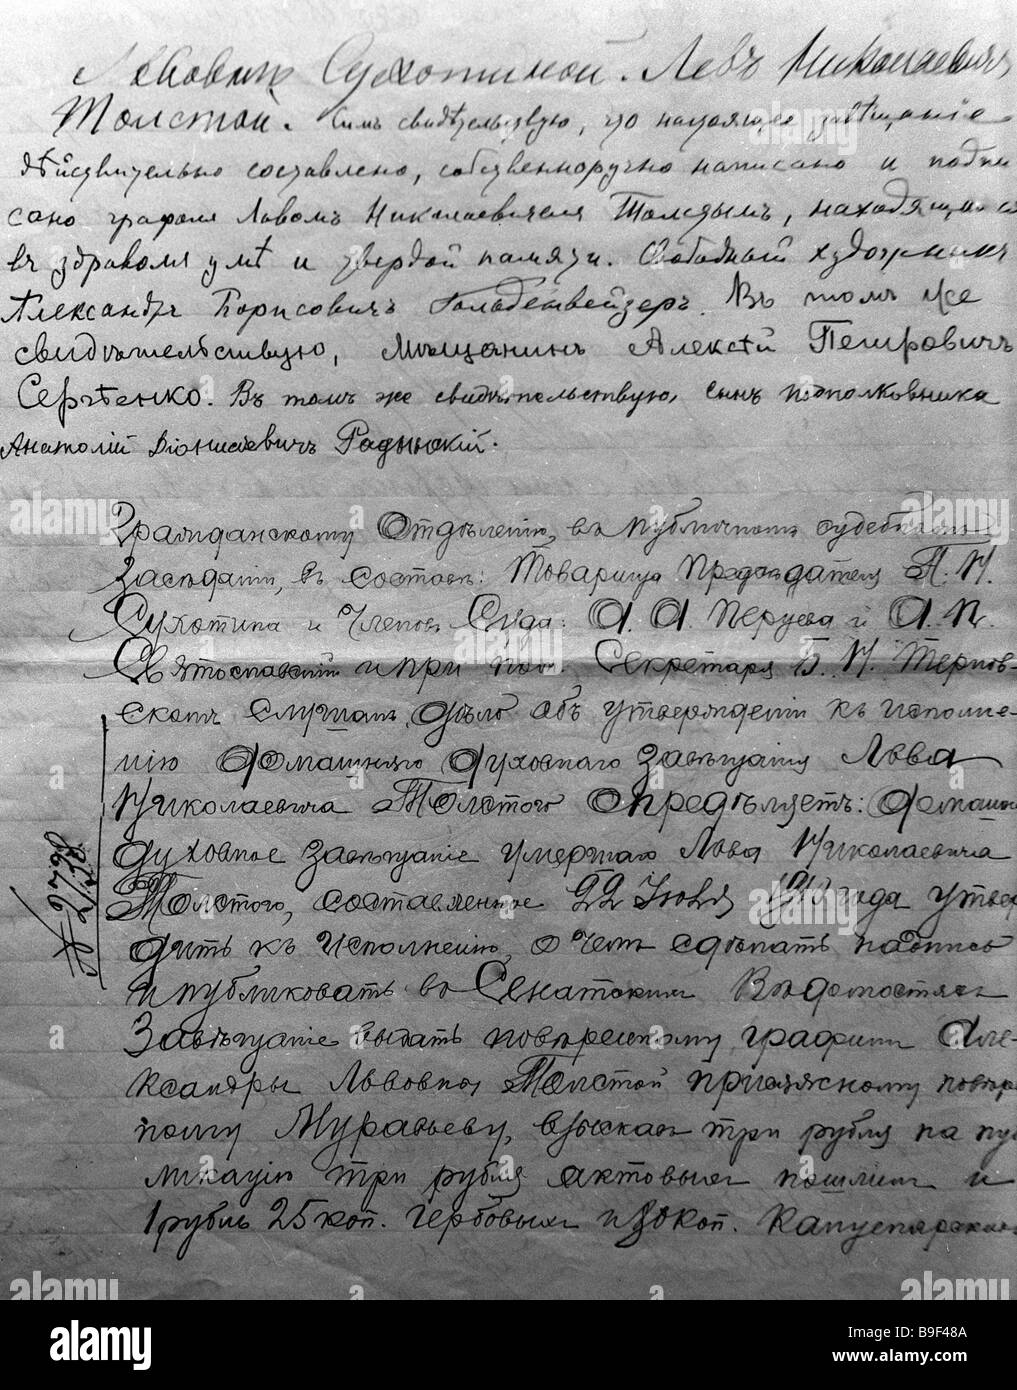 Львовнѣ Сухотиной. Левъ Николаевичъ
Толстой. Симъ свидѣтельствую, что настоящее завѣщаніе
дѣйствительно составлено, собственноручно написано и подпи
сано графомъ Львомъ Николаевичемъ Толстымъ, находящимся
въ здравомъ умѣ и твердой памяти. Свободный художникъ
Александръ Борисовичъ Гольденвейзеръ. Въ томъ же
свидѣтельствую, мѣщанинъ Алексѣй Петровичъ
Сергѣенко. Въ томъ же свидѣтельствую, сынъ подполковника
Анатолій Діонисіевичъ Радынскій.
Гражданскому Отдѣленію, въ публичномъ судебномъ
Засѣданіи, въ составѣ: Товарища Предсѣдателя П. И.
Сухотина и Членовъ Суда: А. А. Перуева и А. П.
Святославскій и при пом. Секретаря Б. И. Терпов-
скомъ Слушалъ дѣло объ утвержденіи къ исполне
нію домашняго духовнаго завѣщанія Льва
Николаевича Толстого опредѣляетъ: домашнее
духовное завѣщаніе умершаго Льва Николаевича
Толстого, составленное 22 Іюля 1910 года утвер
дить къ исполненію, о чемъ сдѣлать надпись
и публиковать въ Сенатскихъ Вѣдомостяхъ
Завѣщаніе выдать повѣренному графини Але-
ксандры Львовны Толстой присяжному повѣрен
ному Муравьеву, взыскавъ три рубля на пуб
ликацію три рубля актовыхъ пошлинъ и
1 рубль 25 коп. гербовыхъ и 30 коп. канцелярскихъ
№ 2729
2730
alamy
Image ID: B9F48A
www.alamy.com